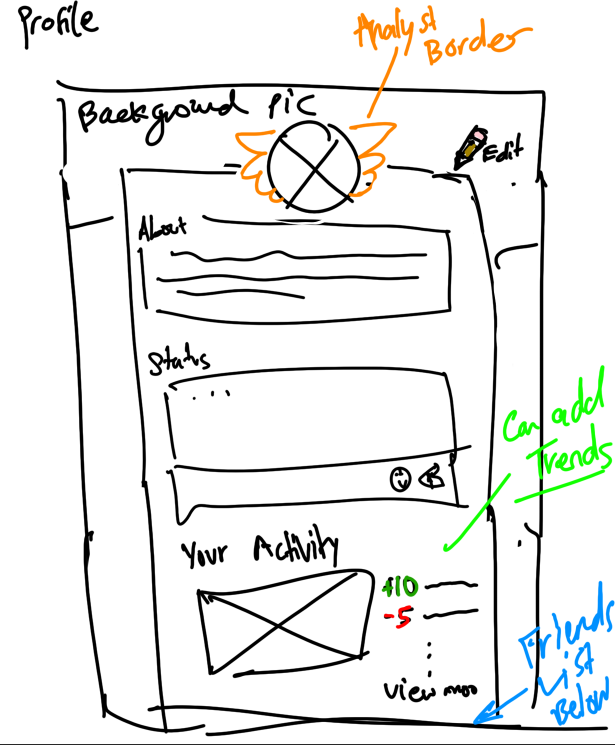 Profile
Analyst
Border
Background Pic
Edit
About
Status
...
Can add
Trends
Your Activity
+10
-5
View moo
Friends
List
Below